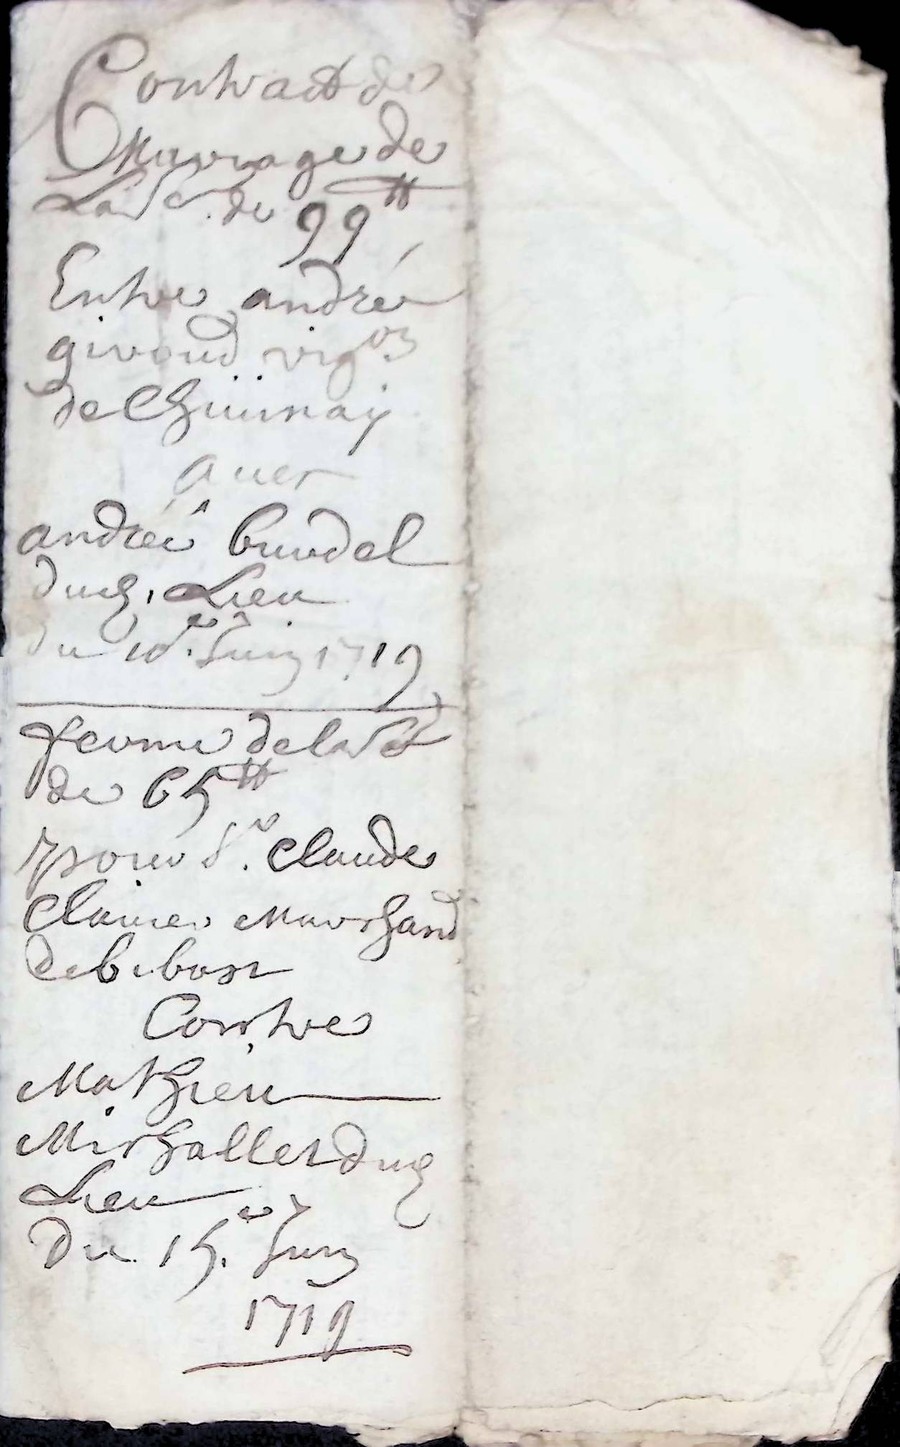 Contract de
Mariage de
La de 99 tt
Entre andré
giroud vigon
de Chuinay
avec
andréé burdel
dud. Lieu
du 10e. Juin 1719
ferme de la
de 65 tt
pour Sr. Claude
Claire Marchand
de bibost
Contre
Mathieu
Michallet dud
Lieu
Du 15.e Juin
1719